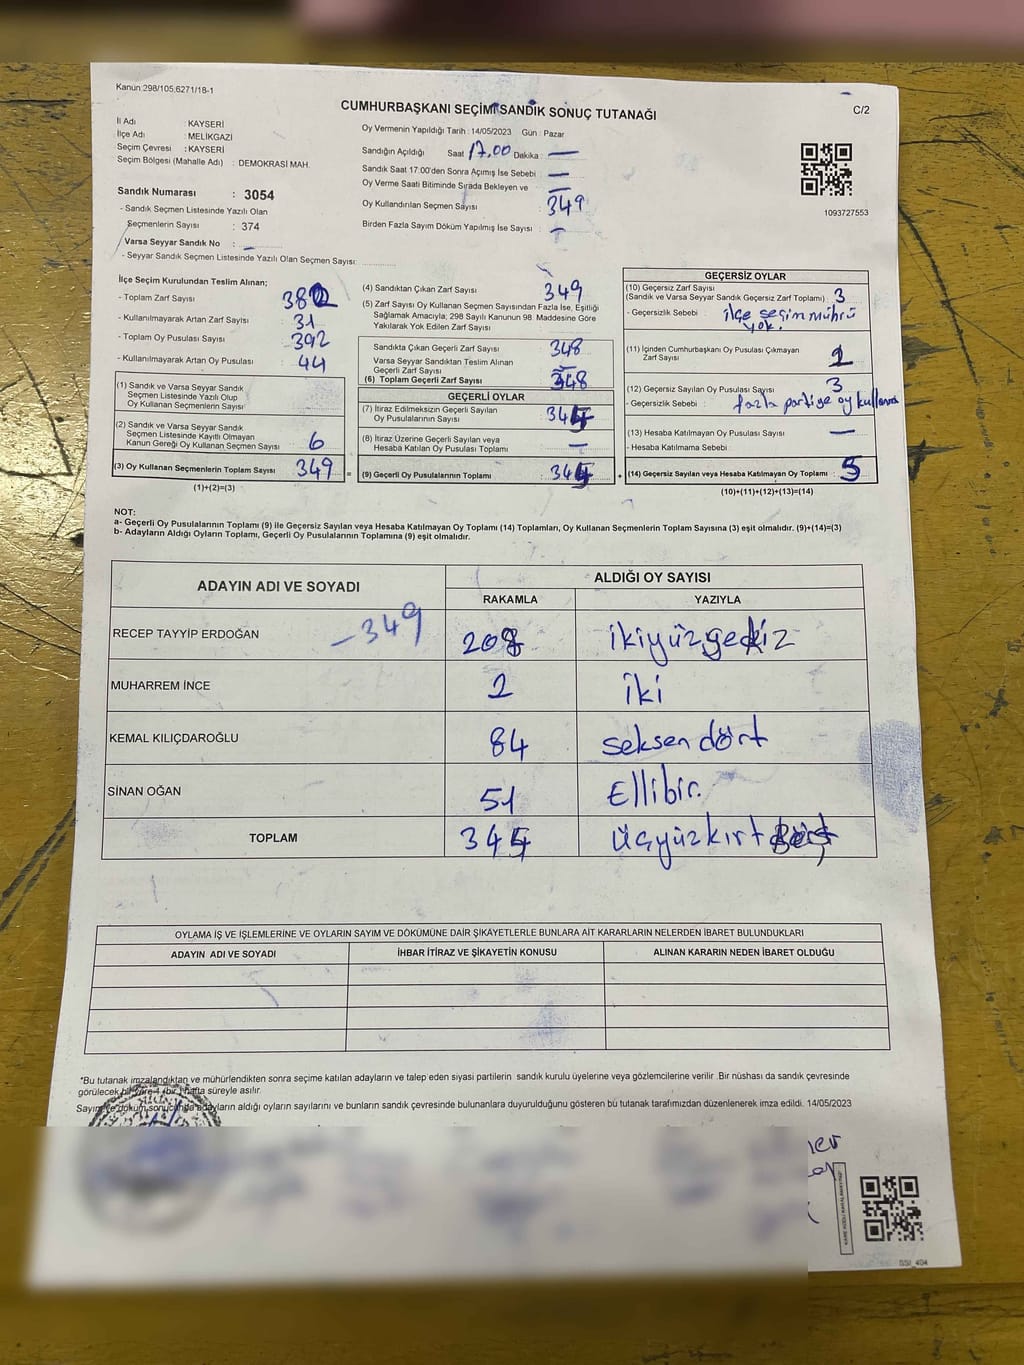 Kanun:298/105,6271/18-1
CUMHURBAŞKANI SEÇİMİ SANDIK SONUÇ TUTANAĞI
C/2
İl Adı : KAYSERİ
İlçe Adı : MELİKGAZİ
Seçim Çevresi : KAYSERİ
Seçim Bölgesi (Mahalle Adı) : DEMOKRASİ MAH.
Sandık Numarası : 3054
- Sandık Seçmen Listesinde Yazılı Olan
Seçmenlerin Sayısı : 374
Varsa Seyyar Sandık No : –
- Seyyar Sandık Seçmen Listesinde Yazılı Olan Seçmen Sayısı:
Oy Vermenin Yapıldığı Tarih : 14/05/2023 Gün : Pazar
Sandığın Açıldığı Saat 17.00 Dakika : —
Sandık Saat 17:00'den Sonra Açımış İse Sebebi : —
Oy Verme Saati Bitiminde Sırada Bekleyen ve : —
Oy Kullandırılan Seçmen Sayısı : 349
Birden Fazla Sayım Döküm Yapılmış İse Sayısı : –
1093727553
İlçe Seçim Kurulundan Teslim Alınan;
- Toplam Zarf Sayısı
- Kullanılmayarak Artan Zarf Sayısı 31
- Toplam Oy Pusulası Sayısı 392
- Kullanılmayarak Artan Oy Pusulası 44
(1) Sandık ve Varsa Seyyar Sandık
Seçmen Listesinde Yazılı Olup
Oy Kullanan Seçmenlerin Sayısı :
(2) Sandık ve Varsa Seyyar Sandık
Seçmen Listesinde Kayıtlı Olmayan
Kanun Gereği Oy Kullanan Seçmen Sayısı : 6
(3) Oy Kullanan Seçmenlerin Toplam Sayısı 349 =
(1)+(2)=(3)
(4) Sandıktan Çıkan Zarf Sayısı : 349
(5) Zarf Sayısı Oy Kullanan Seçmen Sayısından Fazla İse, Eşitliği
Sağlamak Amacıyla; 298 Sayılı Kanunun 98. Maddesine Göre
Yakılarak Yok Edilen Zarf Sayısı
Sandıkta Çıkan Geçerli Zarf Sayısı : 348
Varsa Seyyar Sandıktan Teslim Alınan
Geçerli Zarf Sayısı : —
(6) Toplam Geçerli Zarf Sayısı 348
GEÇERLİ OYLAR
(7) İtiraz Edilmeksizin Geçerli Sayılan
Oy Pusulalarının Sayısı :
(8) İtiraz Üzerine Geçerli Sayılan veya
Hesaba Katılan Oy Pusulası Toplamı : –
(9) Geçerli Oy Pusulalarının Toplamı : +
GEÇERSİZ OYLAR
(10) Geçersiz Zarf Sayısı
(Sandık ve Varsa Seyyar Sandık Geçersiz Zarf Toplamı) : 3
- Geçersizlik Sebebi : ilçe seçim mührü
yok.
(11) İçinden Cumhurbaşkanı Oy Pusulası Çıkmayan
Zarf Sayısı :
(12) Geçersiz Sayılan Oy Pusulası Sayısı : 3
- Geçersizlik Sebebi : fazla partiye oy
(13) Hesaba Katılmayan Oy Pusulası Sayısı : —
- Hesaba Katılmama Sebebi :
(14) Geçersiz Sayılan veya Hesaba Katılmayan Oy Toplamı : 5
(10)+(11)+(12)+(13)=(14)
NOT:
a- Geçerli Oy Pusulalarının Toplamı (9) ile Geçersiz Sayılan veya Hesaba Katılmayan Oy Toplamı (14) Toplamları, Oy Kullanan Seçmenlerin Toplam Sayısına (3) eşit olmalıdır. (9)+(14)=(3)
b- Adayların Aldığı Oyların Toplamı, Geçerli Oy Pusulalarının Toplamına (9) eşit olmalıdır.
ADAYIN ADI VE SOYADI
ALDIĞI OY SAYISI
RAKAMLA YAZIYLA
–349
RECEP TAYYİP ERDOĞAN 208
MUHARREM İNCE 2 iki
KEMAL KILIÇDAROĞLU 84 seksen dört
SİNAN OĞAN 51 Ellibir.
TOPLAM 345 Üçyüzkırt
OYLAMA İŞ VE İŞLEMLERİNE VE OYLARIN SAYIM VE DÖKÜMÜNE DAİR ŞİKAYETLERLE BUNLARA AİT KARARLARIN NELERDEN İBARET BULUNDUKLARI
ADAYIN ADI VE SOYADI İHBAR İTİRAZ VE ŞİKAYETİN KONUSU ALINAN KARARIN NEDEN İBARET OLDUĞU
*Bu tutanak imzalandıktan ve mühürlendikten sonra seçime katılan adayların ve talep eden siyasi partilerin sandık kurulu üyelerine veya gözlemcilerine verilir .Bir nüshası da sandık çevresinde
görülecek bir yere 1 (bir) hafta süreyle asılır.
Sayım ve döküm sonucunda adayların aldığı oyların sayılarını ve bunların sandık çevresinde bulunanlara duyurulduğunu gösteren bu tutanak tarafımızdan düzenlenerek imza edildi. 14/05/2023